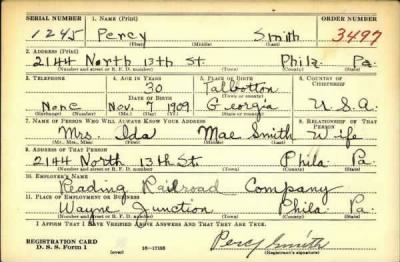 SERIAL NUMBER 1. NAME (Print) ORDER NUMBER
1245 Percy Smith 3497
(First) (Middle) (Last)
2. ADDRESS (Print)
2144 North 13th St. Phila Pa.
(Number and street or R. F. D. number) (Town) (County) (State)
3. TELEPHONE 4. AGE IN YEARS 5. PLACE OF BIRTH 6. COUNTRY OF CITIZENSHIP
30 Talbotton
DATE OF BIRTH (Town or county)
None Nov. 7, 1909 Georgia U.S.A.
(Exchange) (Number) (Mo.) (Day) (Yr.) (State or country)
7. NAME OF PERSON WHO WILL ALWAYS KNOW YOUR ADDRESS 8. RELATIONSHIP OF THAT PERSON
Mrs. Ida Mae Smith Wife
(Mr., Mrs., Miss) (First) (Middle) (Last)
9. ADDRESS OF THAT PERSON
2144 North 13th St Phila Pa.
(Number and street or R. F. D. number) (Town) (County) (State)
10. EMPLOYER'S NAME
Reading Railroad Company
11. PLACE OF EMPLOYMENT OR BUSINESS
Wayne Junction Phila Pa.
(Number and street or R. F. D. number) (Town) (County) (State)
I AFFIRM THAT I HAVE VERIFIED ABOVE ANSWERS AND THAT THEY ARE TRUE.
REGISTRATION CARD
D. S. S. Form 1 (over) 16-17105 Percy Smith
(Registrant's signature)